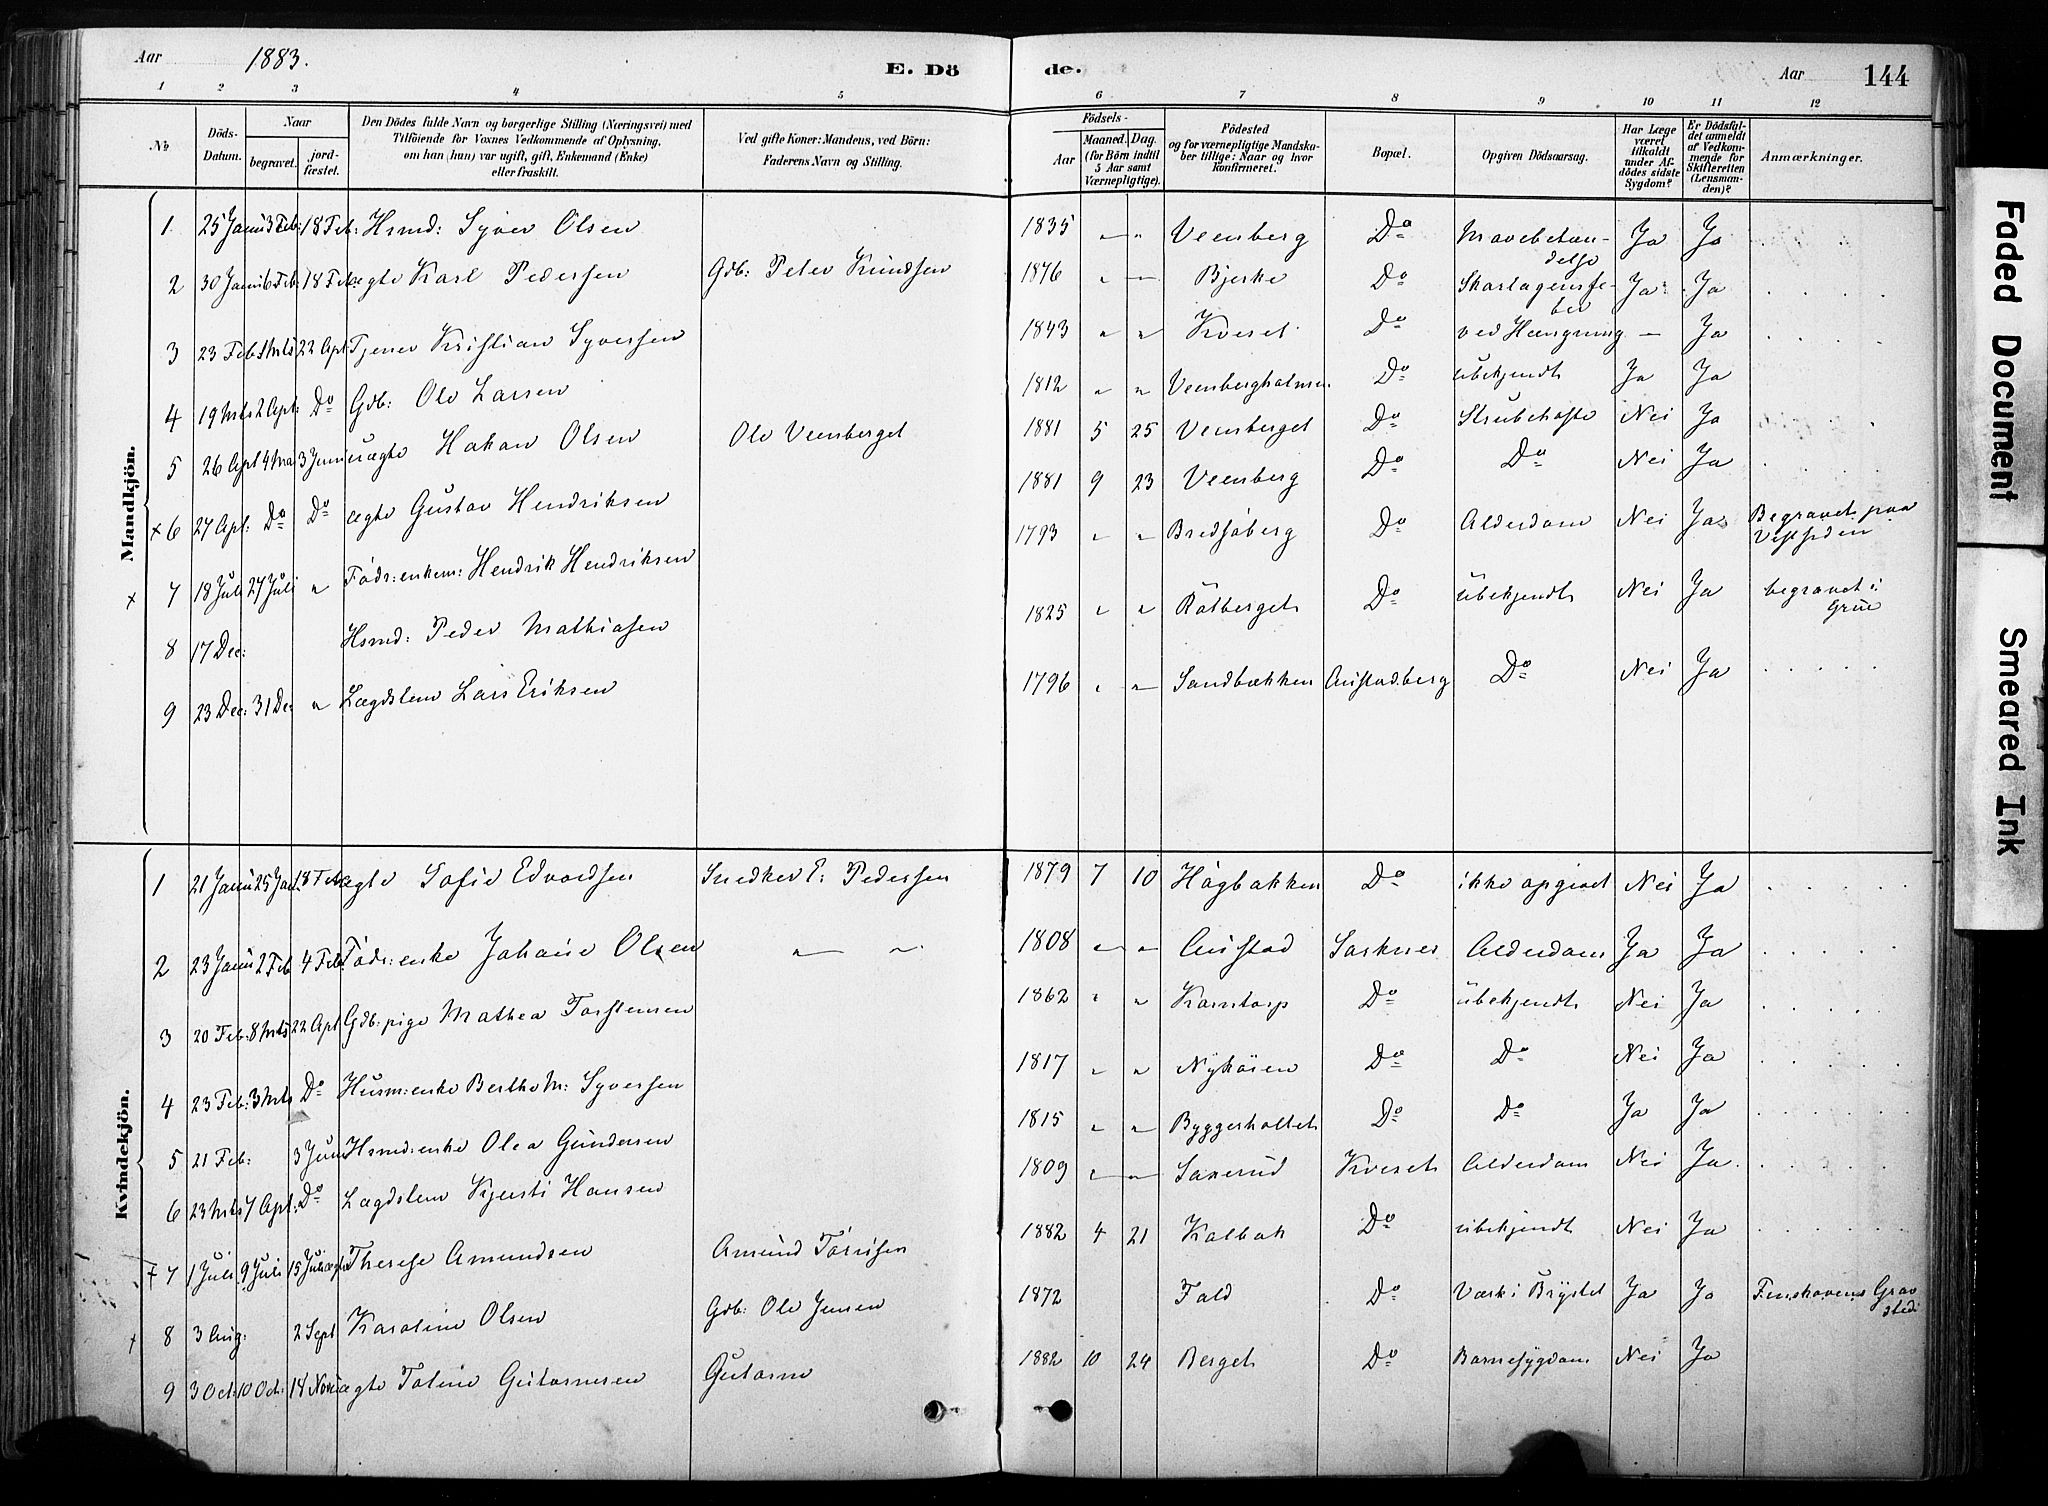 Aar 1883. E. Dö de. Aar 144
1 2 3 4 5 6 7 8 9 10 11 12
No
Döds-Datum.
Naar
begravet.
jord-fæstet.
Den Dödes fulde Navn og borgerlige Stilling (Næringsvei) med
Tilföiende for Voxnes Vedkommende af Oplysning,
om han (hun) var ugift, gift, Enkemand (Enke)
eller fraskilt.
Ved gifte Koner: Mandens, ved Börn:
Faderens Navn og Stilling.
Födsels-
Aar
Maaned. Dag.
(for Börn indtil
5 Aar samt
Værnepligtige).
Födested
og for værnepligtige Mandska-
ber tillige: Naar og hvor
konfirmeret.
Bopæl.
Opgiven Dödsaarsag.
Har Læge
været
tilkaldt
under Af-
dödes sidste
Sygdom?
Er Dödsfal-
det anmeldt
af Vedkom-
mende for
Skifteretten
(Lensman-
den)?
Anmærkninger.
Mandkjön.
1 25 Janu 3 Feb: 18 Feb: Hsmd: Syver Olsen 1835 " " Veenberg Do Mavebetæn-delse Ja Ja
2 30 Janu 6 Feb: 18 Feb: ægte Karl Pedersen Gdb: Peter Knudsen 1876 " " Bjerke Do Skarlagensfe-ber Ja Ja
3 23 Feb 1 Mrts 22 Apt: Tjener Kristian Syversen 1843 " " Kveset Do ved Hængning — Ja
4 19 Mrts 2 Apt: Do Gdb: Ole Larsen 1812 " " Veenbergholmen Do ubekjendt Ja Ja
5 26 Apt 4 Mai 3 Juni uægte Hakan Olsen Ole Veenberget 1881 5 25 Veenberget Do Strubehoste Nei Ja
x 6 27 Apt: Do Do ægte Gustav Hendriksen 1881 9 23 Veenberg Do Do Nei Ja
x 7 18 Juli 27 Juli " Födr: enkem: Hendrik Hendriksen 1793 " " Bredsjöberg Do Alderdom Nei Ja Begravet paa
8 17 Dec: Hsmd: Peder Mathiasen 1825 " " Rötberget Do ubekjendt Nei Ja begravet i Grue
9 23 Dec: 31 Dec " Lægdslem Lars Eriksen 1796 " " Sandbækken Austadberg Do Nei Ja
Kvindekjön.
1 21 Janu 25 Jan 18 Feb ægte Sofie Edvardsen Snedker E: Pedersen 1879 7 10 Högbakken Do ikke opgivet Nei Ja
2 23 Janu 2 Feb 4 Feb: Födr: enke Johane Olsen " " 1808 " " Austad Sorknes Alderdom Ja Ja
3 20 Feb: 8 Mrts 22 Apt Gdb: pige Mathea Torstensen 1862 " " Korntorp Do ubekjendt Nei Ja
4 23 Feb: 3 Mrts Do Husm: enke Berthe M: Syversen 1817 " " Nyköien Do Do Nei Ja
5 21 Feb: 3 Juni Hsmd: enke Olea Gundersen 1815 " " Byggerholtet Do Do Ja Ja
6 23 Mrts 7 Apt: Do Lægdslem Kjersti Hansen 1809 " " Saxerud Kveset Alderdom Nei Ja
7 1 Juli 9 Juli 15 Juli ægte Therese Amundsen Amund Torrisen 1882 4 21 Kalbak Do ubekjendt Nei Ja
8 3 Aug: 2 Sept Karoline Olsen Gdb: Ole Jensen 1872 Fald Do Værk i Brystet Ja Ja Finskovens Grav-sted
9 3 Oct: 10 Oct: 18 Nov: ægte Toline 1882 10 24 Berget Do Barnesygdom Nei Ja
Faded Document
Smeared Ink